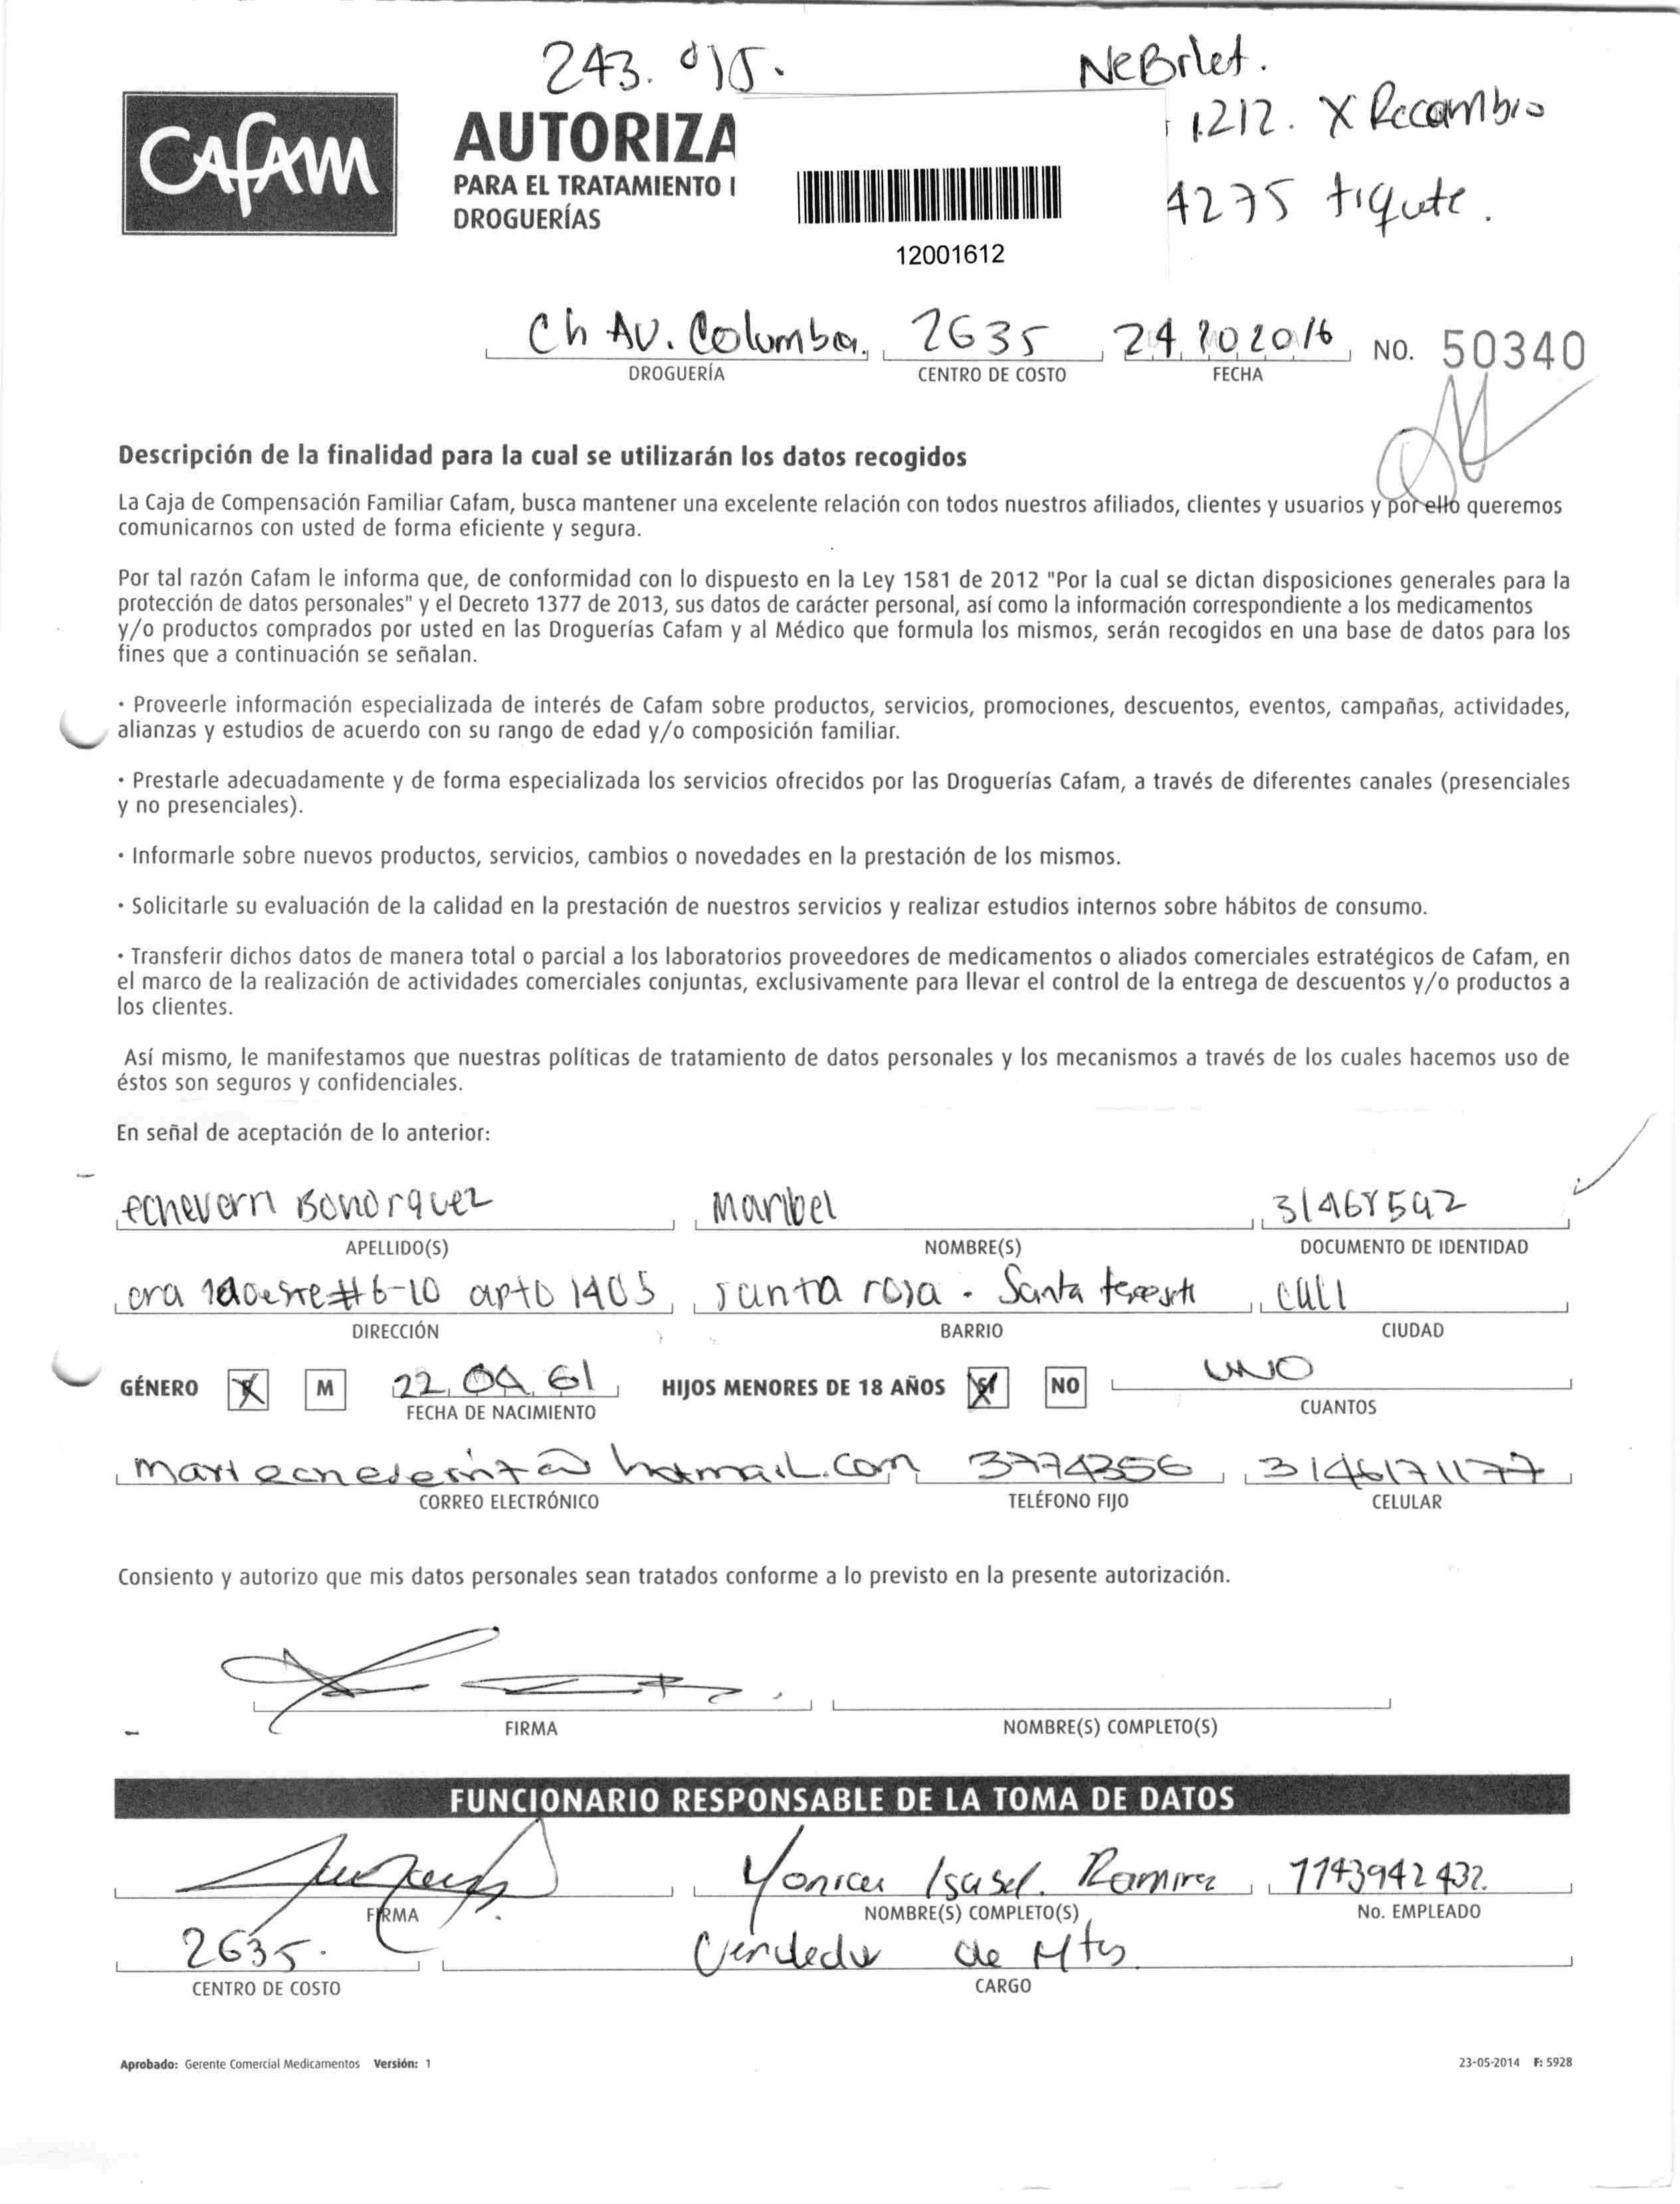 243. 015.
NeBilet.
1212. X Recambio
4275 tiquete.
CAFAM
AUTORIZA
PARA EL TRATAMIENTO
DROGUERÍAS
12001612
Ch AV. Colombia. 2635 24 10 2016 NO. 50340
DROGUERÍA CENTRO DE COSTO FECHA
Descripción de la finalidad para la cual se utilizarán los datos recogidos
La Caja de Compensación Familiar Cafam, busca mantener una excelente relación con todos nuestros afiliados, clientes y usuarios y por ello queremos
comunicarnos con usted de forma eficiente y segura.
Por tal razón Cafam le informa que, de conformidad con lo dispuesto en la Ley 1581 de 2012 "Por la cual se dictan disposiciones generales para la
protección de datos personales" y el Decreto 1377 de 2013, sus datos de carácter personal, así como la información correspondiente a los medicamentos
y/o productos comprados por usted en las Droguerías Cafam y al Médico que formula los mismos, serán recogidos en una base de datos para los
fines que a continuación se señalan.
· Proveerle información especializada de interés de Cafam sobre productos, servicios, promociones, descuentos, eventos, campañas, actividades,
alianzas y estudios de acuerdo con su rango de edad y/o composición familiar.
· Prestarle adecuadamente y de forma especializada los servicios ofrecidos por las Droguerías Cafam, a través de diferentes canales (presenciales
y no presenciales).
· Informarle sobre nuevos productos, servicios, cambios o novedades en la prestación de los mismos.
· Solicitarle su evaluación de la calidad en la prestación de nuestros servicios y realizar estudios internos sobre hábitos de consumo.
· Transferir dichos datos de manera total o parcial a los laboratorios proveedores de medicamentos o aliados comerciales estratégicos de Cafam, en
el marco de la realización de actividades comerciales conjuntas, exclusivamente para llevar el control de la entrega de descuentos y/o productos a
los clientes.
Así mismo, le manifestamos que nuestras políticas de tratamiento de datos personales y los mecanismos a través de los cuales hacemos uso de
éstos son seguros y confidenciales.
En señal de aceptación de lo anterior:
echeverri Bohorquez Maribel
APELLIDO(S) NOMBRE(S) DOCUMENTO DE IDENTIDAD
cra 1a oeste # 6-10 apto 1405 santa rosa - Santa teresita cali
DIRECCIÓN BARRIO CIUDAD
GÉNERO X M 22 09 61 HIJOS MENORES DE 18 AÑOS SI NO UNO
FECHA DE NACIMIENTO CUANTOS
hotmail.com 3774356 3146171177
CORREO ELECTRÓNICO TELÉFONO FIJO CELULAR
Consiento y autorizo que mis datos personales sean tratados conforme a lo previsto en la presente autorización.
FIRMA NOMBRE(S) COMPLETO(S)
FUNCIONARIO RESPONSABLE DE LA TOMA DE DATOS
Isabel. Ramirez 1143942432.
FIRMA NOMBRE(S) COMPLETO(S) No. EMPLEADO
2635. Vendedor de Mtos
CENTRO DE COSTO CARGO
Aprobado: Gerente Comercial Medicamentos Versión: 1 23-05-2014 F: 5928